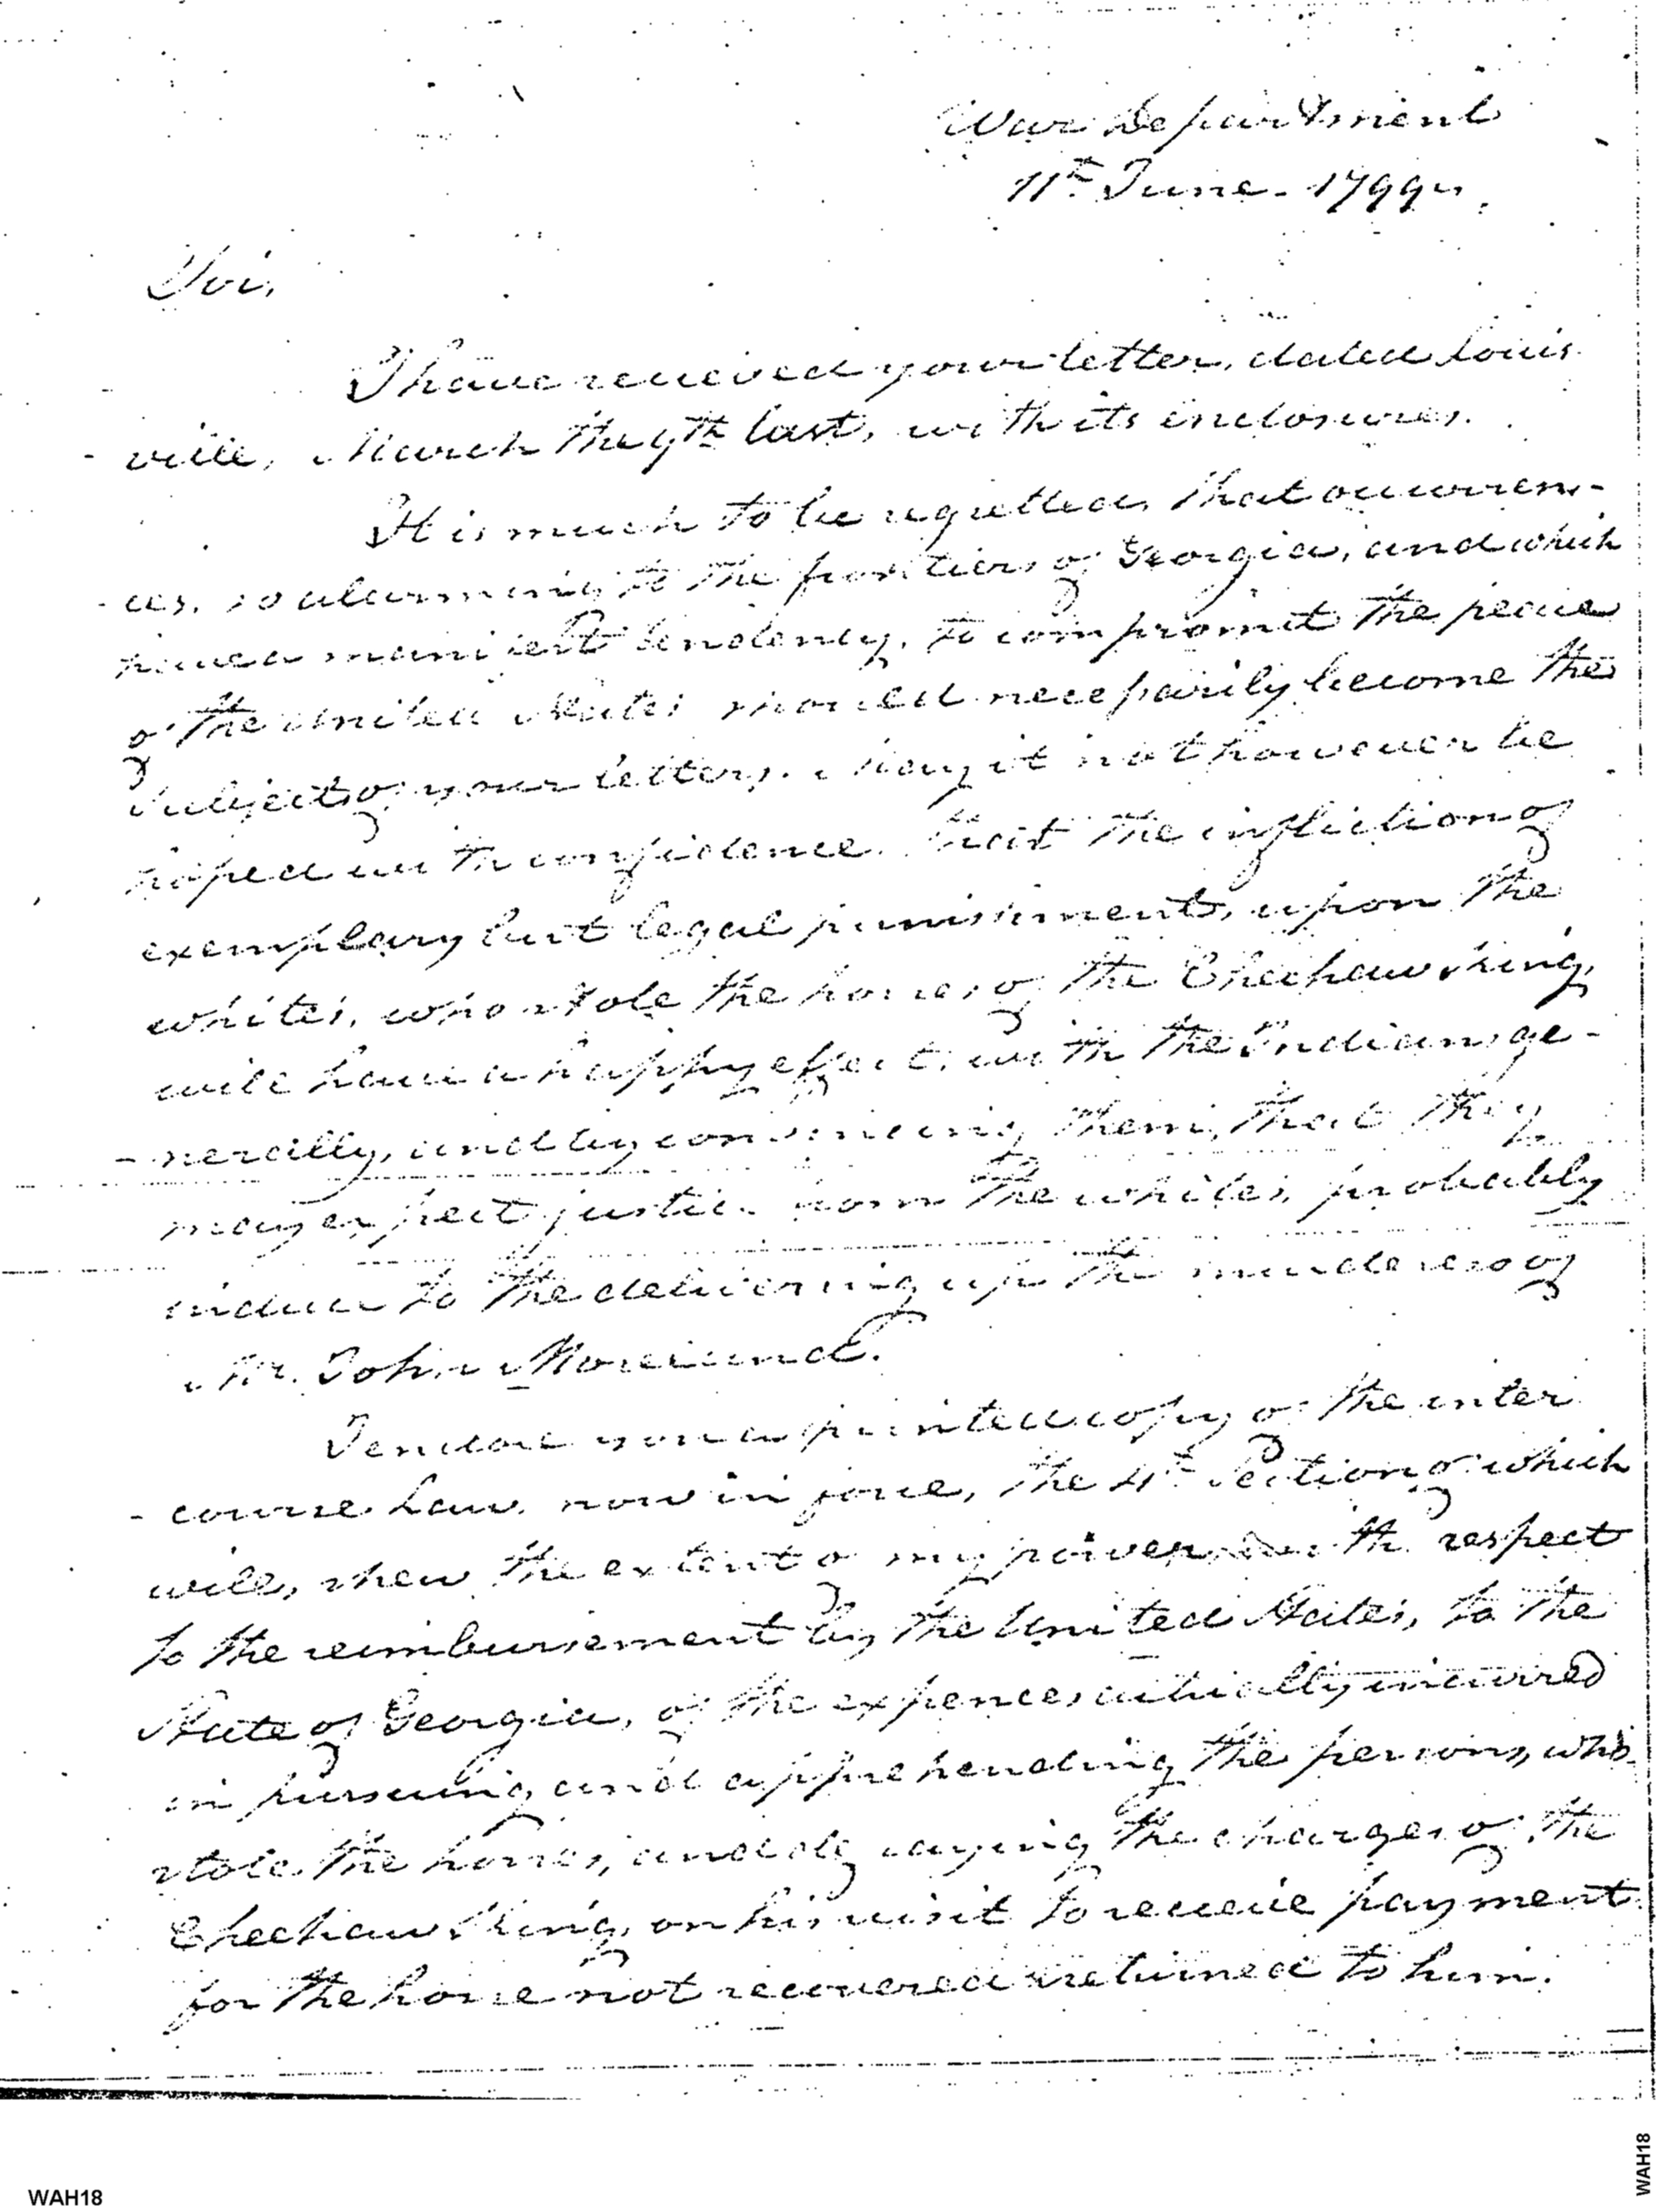 War Department
11th June - 1799.
Sir,
I have received your letter, dated Louis
- ville, March the 9th last, with its inclosures.
It is much to be regretted, that occurren-
- ces, so alarming to the frontiers of Georgia, and which
have a manifest tendency, to compromit the peace
of the United States should necessarily become the
subject of your letters. May it not however be
hoped with confidence. that the infliction of
exemplary but legal punishments, upon the
whites, who stole the horses of the Cheehaw King,
will have a happy effect, with the Indians ge-
- nerally, and by convincing them, that they
may expect justice from the whites, probably
induce to the delivering up the murderers of
Mr. John Moreland.
I enclose you a printed copy of the inter
- course Law, now in force, the 4th Section of which
will, shew the extent of my power, with respect
to the reimbursement by the United States, to the
State of Georgia, of the expences actually incurred
in pursuing and apprehending the persons, who
stole the horses, and defraying the charges of the
Cheehaw King, on his visit to receive payment
for the horse not recovered & returned to him.
WAH18
WAH18